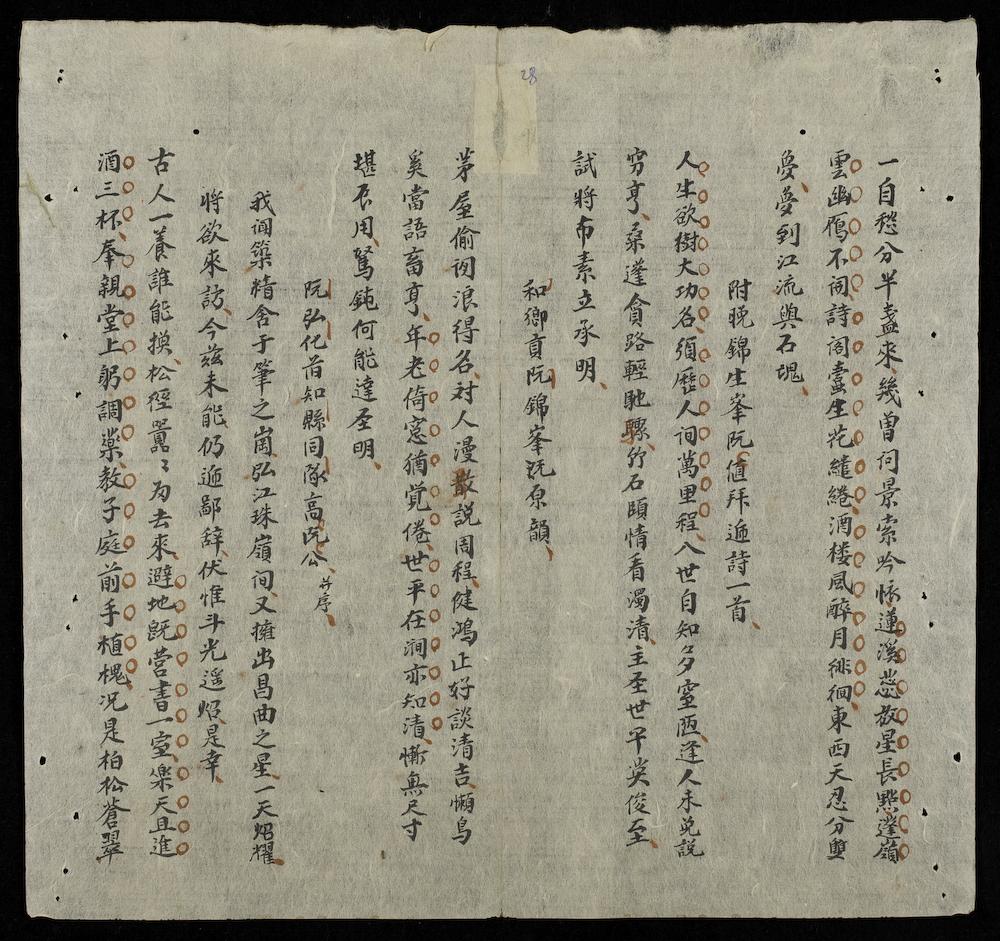 28
一自愁分半盞來、幾曽问景索吟懐、蓮溪恭敎星長㸃、蓬嶺
雲幽鴈不回、詩阁壹生花繾綣、酒楼風醉月徘徊、東西天忍分
夢、夢到江流與石塊、
附晚錦生峯阮值拜逓詩一首、
人生欲樹大功名、須歴人间萬里程、入世自知多窒逢人未免説
穷亨、桒蓬貪路輕馳驟、竹石頤情看濁清、主圣世平英俊至、
試將布素立承明、
和鄉貢阮錦峯阮原韻、
茅屋偷闲浪得名、对人漫散説周程、健鴻止好談清吉、懒鸟
奚當語畜亨、年老倚窓猶覚倦、世平在涧亦知清、慚無尺寸
堪辰用、駑鈍何能達圣明、
阮弘化首知縣同隊高阮公、并序、
我闻築精舍于筆之崗弘江珠嶺间、又擁出昌曲之星一天炤耀、
將欲來訪、今兹未能、仍逓鄙辞、伏惟斗光遥炤是幸、
古人一養誰能換、松徑嚣〻为去來、避地既营書一室、楽天且進
酒三杯、奉親堂上躬調藥、教子庭前手植槐、况是柏松蒼翠